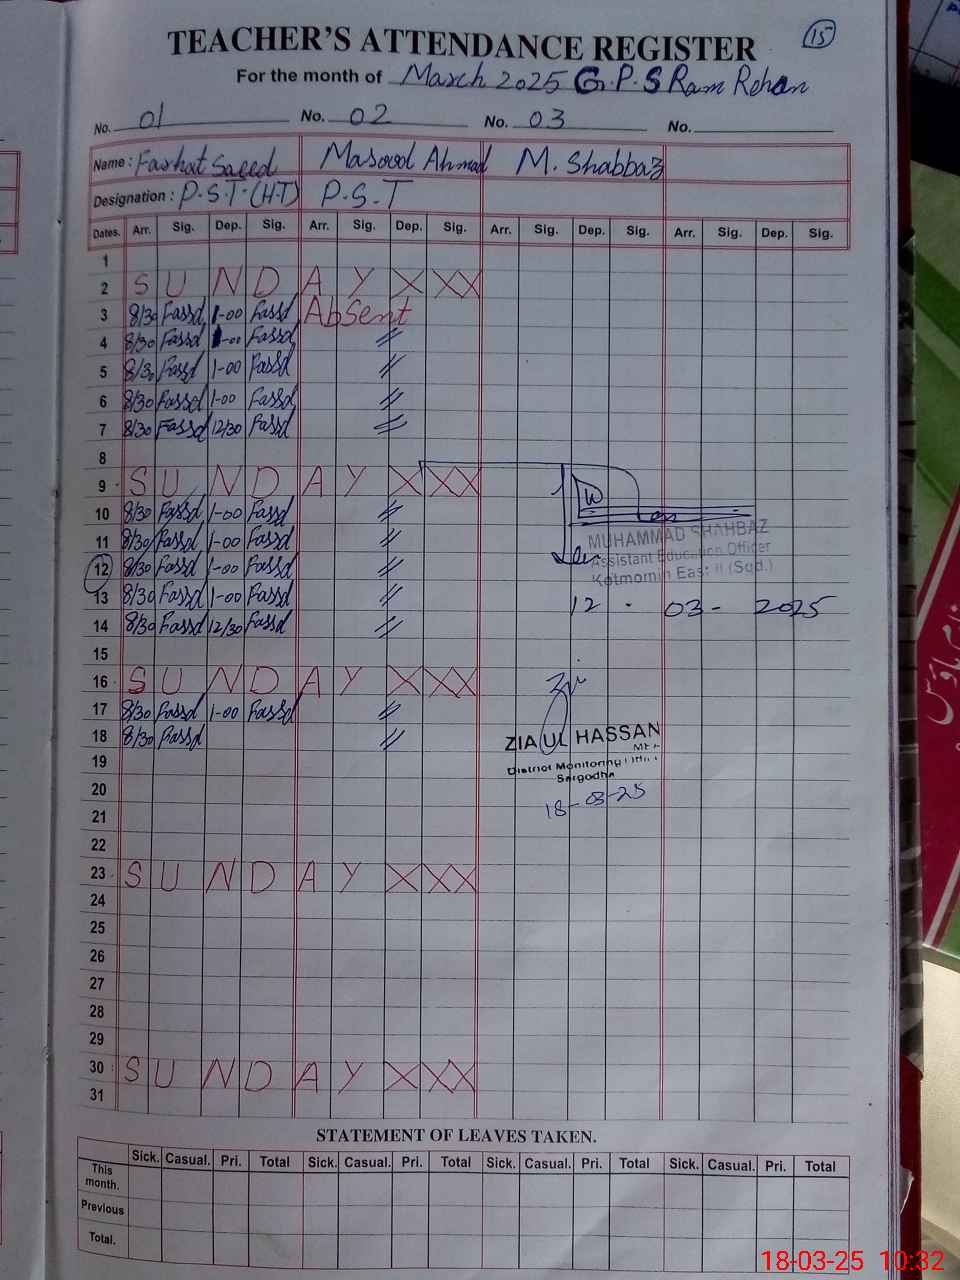 15
TEACHER'S ATTENDANCE REGISTER
For the month of March 2025 G.P.S Ram Rehan
No. 01 No. 02 No. 03 No.
Name : Farhat Saeed Masood Ahmad M. Shabbaz
Designation : P.S.T (H.T) P.S.T
Dates. Arr. Sig. Dep. Sig. Arr. Sig. Dep. Sig. Arr. Sig. Dep. Sig. Arr. Sig. Dep. Sig.
1
2 SUNDAY XXX
3 8/30 Fassd 1-00 Fassd Absent
4 8/30 Fassd 1-00 Fassd //
5 8/30 Fassd 1-00 Fassd //
6 8/30 Fassd 1-00 Fassd //
7 8/30 Fassd 12/30 Fassd //
8
9 SUNDAY XXX
10 8/30 Fassd 1-00 Fassd //
11 8/30 Fassd 1-00 Fassd //
MUHAMMAD SHAHBAZ
Assistant Education Officer
12 8/30 Fassd 1-00 Fassd //
Kotmomin East II (Sgd.)
13 8/30 Fassd 1-00 Fassd //
12 . 03 - 2025
14 8/30 Fassd 12/30 Fassd //
15
16 SUNDAY XXX
17 8/30 Fassd 1-00 Fassd //
18 8/30 Fassd //
ZIA UL HASSAN
19
District Monitoring Officer
Sargodha
20
18-03-25
21
22
23 SUNDAY XXX
24
25
26
27
28
29
30 SUNDAY XXX
31
STATEMENT OF LEAVES TAKEN.
Sick. Casual. Pri. Total Sick. Casual. Pri. Total Sick. Casual. Pri. Total Sick. Casual. Pri. Total
This month.
Previous
Total.
18-03-25 10:32